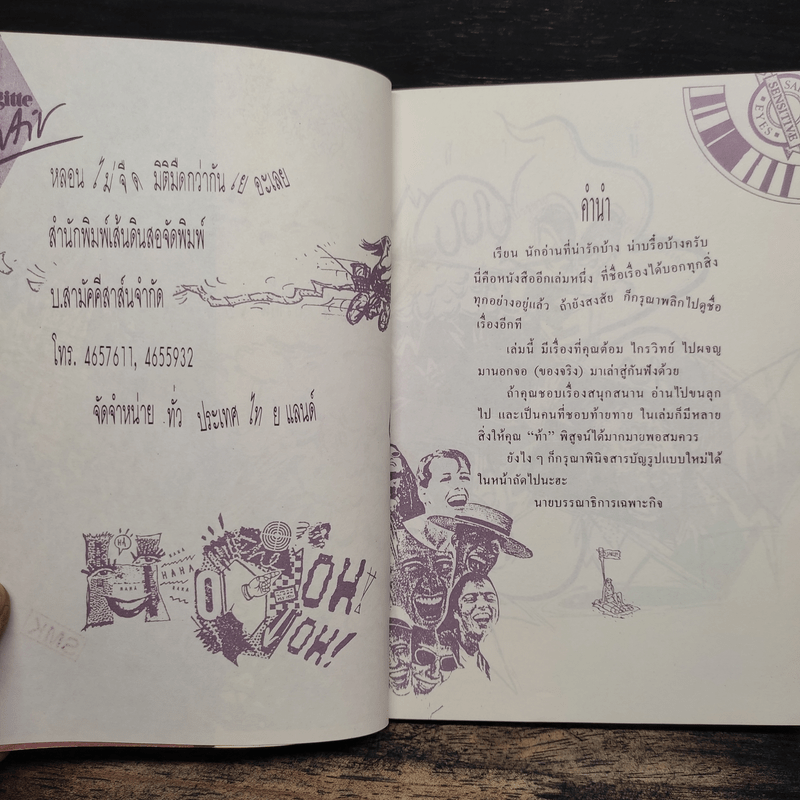 gitte
หลอน ไม่จืด มิติมืดกว่ากัน เย อะเลย
สำนักพิมพ์เส้นดินสอจัดพิมพ์
บ.สามัคคีสาส์นจำกัด
โทร. 4657611, 4655932
จัดจำหน่าย ทั่ว ประเทศ ไท ย แลนด์
HA
HAHA
HAHA
OH!
WOH!
SMK
SENSITIVE
EYES
คำนำ
เรียน นักอ่านที่น่ารักบ้าง น่าบรื๋อบ้างครับ
นี่คือหนังสืออีกเล่มหนึ่ง ที่ชื่อเรื่องได้บอกทุกสิ่ง
ทุกอย่างอยู่แล้ว ถ้ายังสงสัย ก็กรุณาพลิกไปดูชื่อ
เรื่องอีกที
เล่มนี้ มีเรื่องที่คุณต้อม ไกรวิทย์ ไปผจญ
มานอกจอ (ของจริง) มาเล่าสู่กันฟังด้วย
ถ้าคุณชอบเรื่องสนุกสนาน อ่านไปขนลุก
ไป และเป็นคนที่ชอบท้าทาย ในเล่มก็มีหลาย
สิ่งให้คุณ “ท้า” พิสูจน์ได้มากมายพอสมควร
ยังไง ๆ ก็กรุณาพินิจสารบัญรูปแบบใหม่ได้
ในหน้าถัดไปนะฮะ
นายบรรณาธิการเฉพาะกิจ